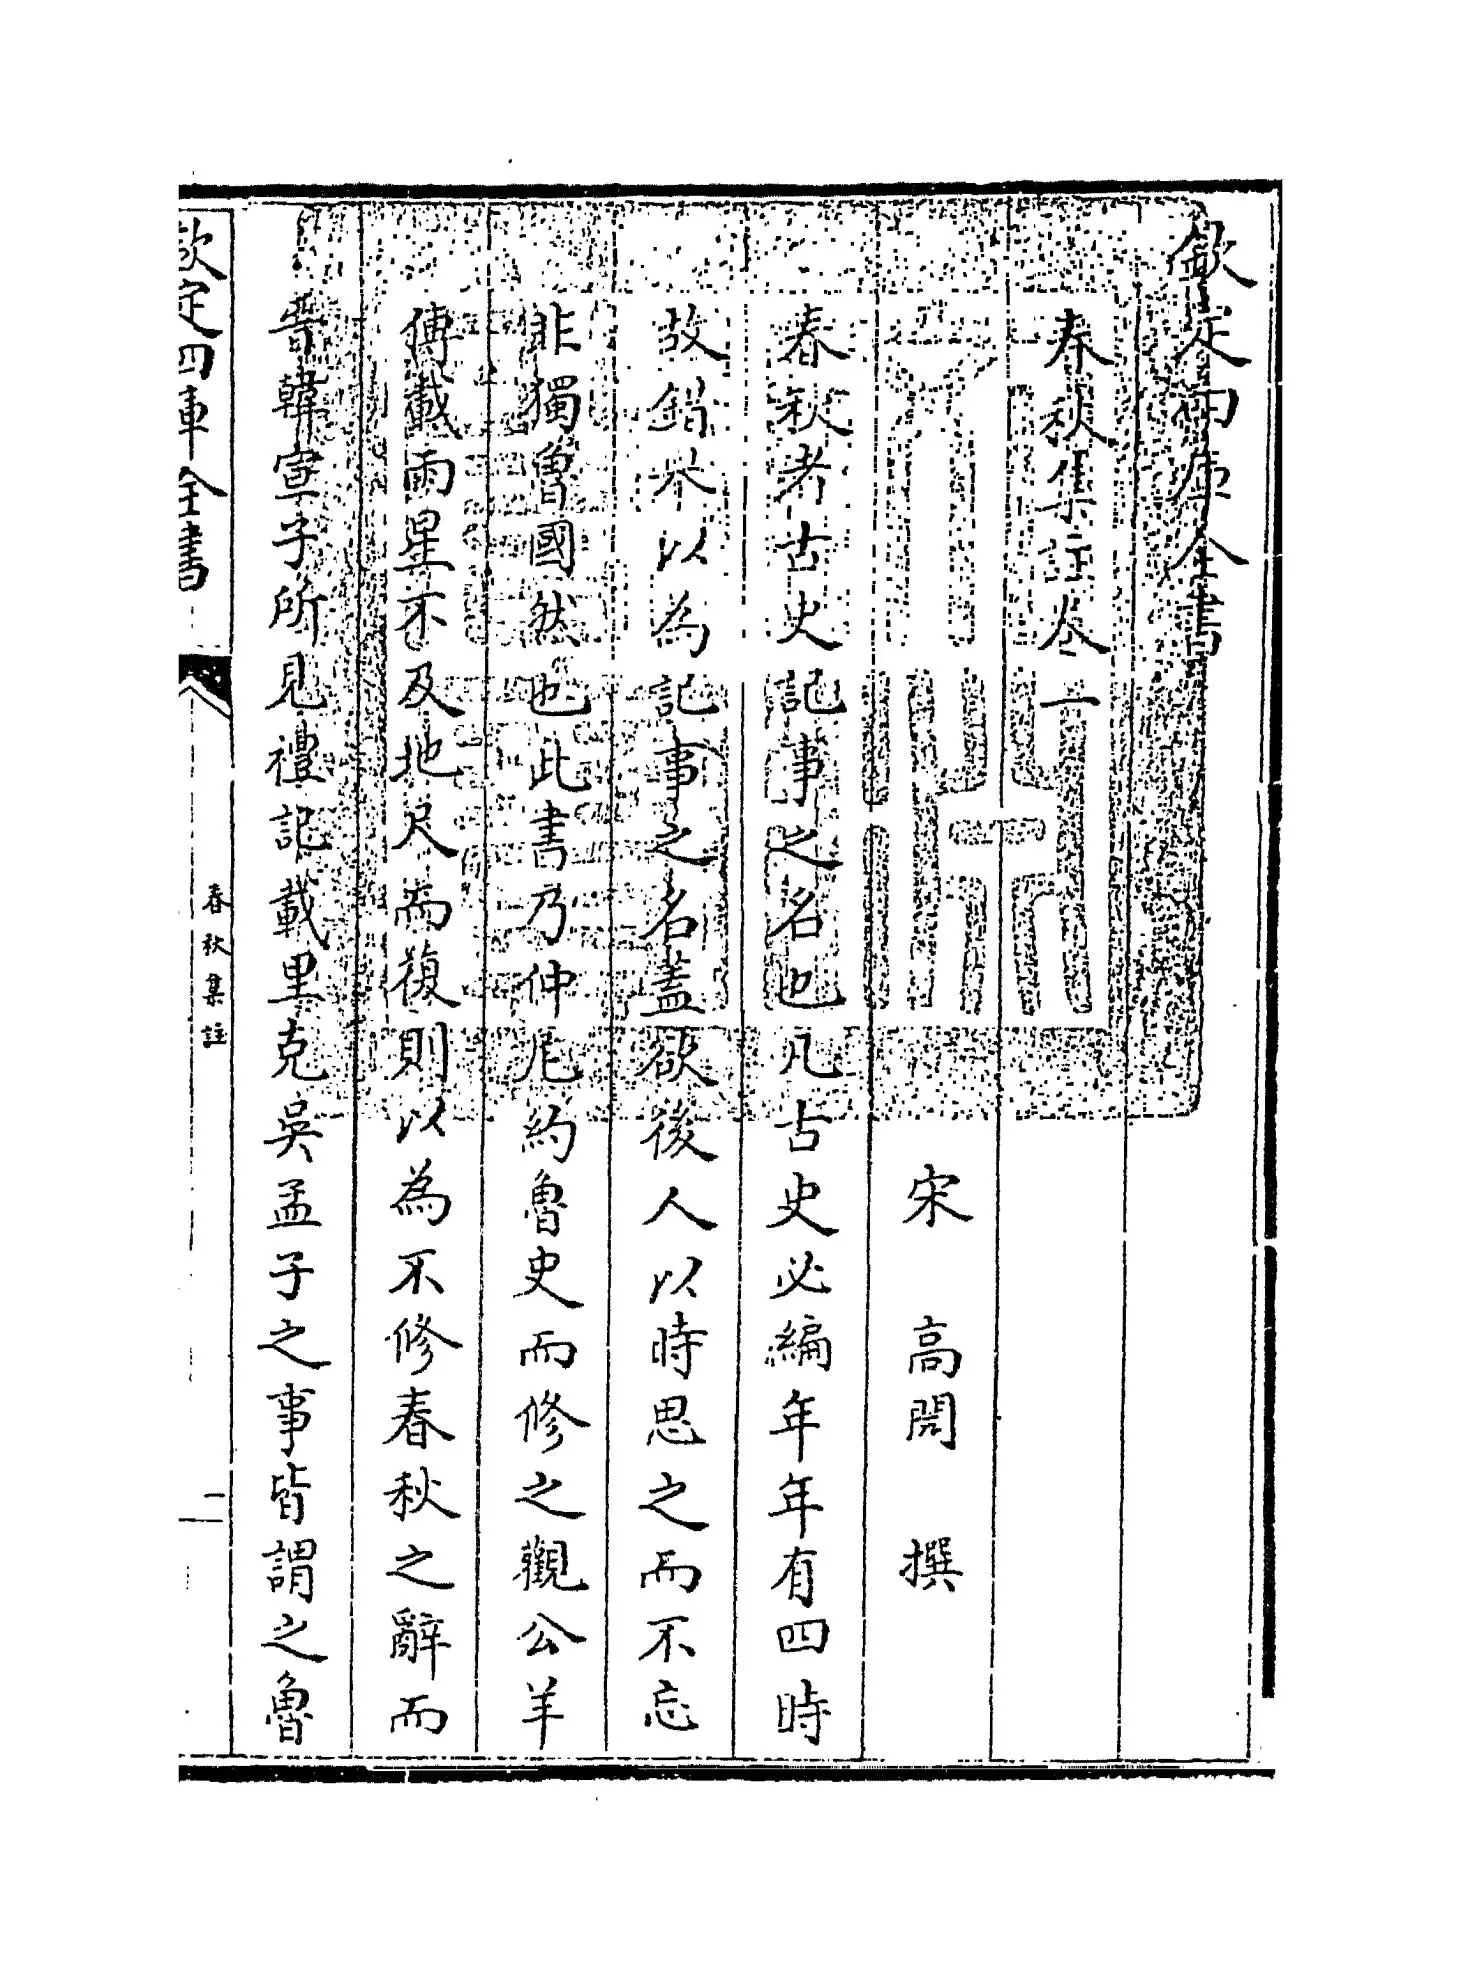 欽定四庫全書
春秋集註卷一
宋 高閌 撰
春秋者古史記事之名也凡古史必編年年有四時
故錯舉以為記事之名蓋欲後人以時思之而不忘
非獨魯國然也此書乃仲尼約魯史而修之觀公羊
傳載雨星不及地尺而復則以為不修春秋之辭而
晉韓宣子所見禮記載里克吳孟子之事皆謂之魯
欽定四庫全書
春秋集註
一